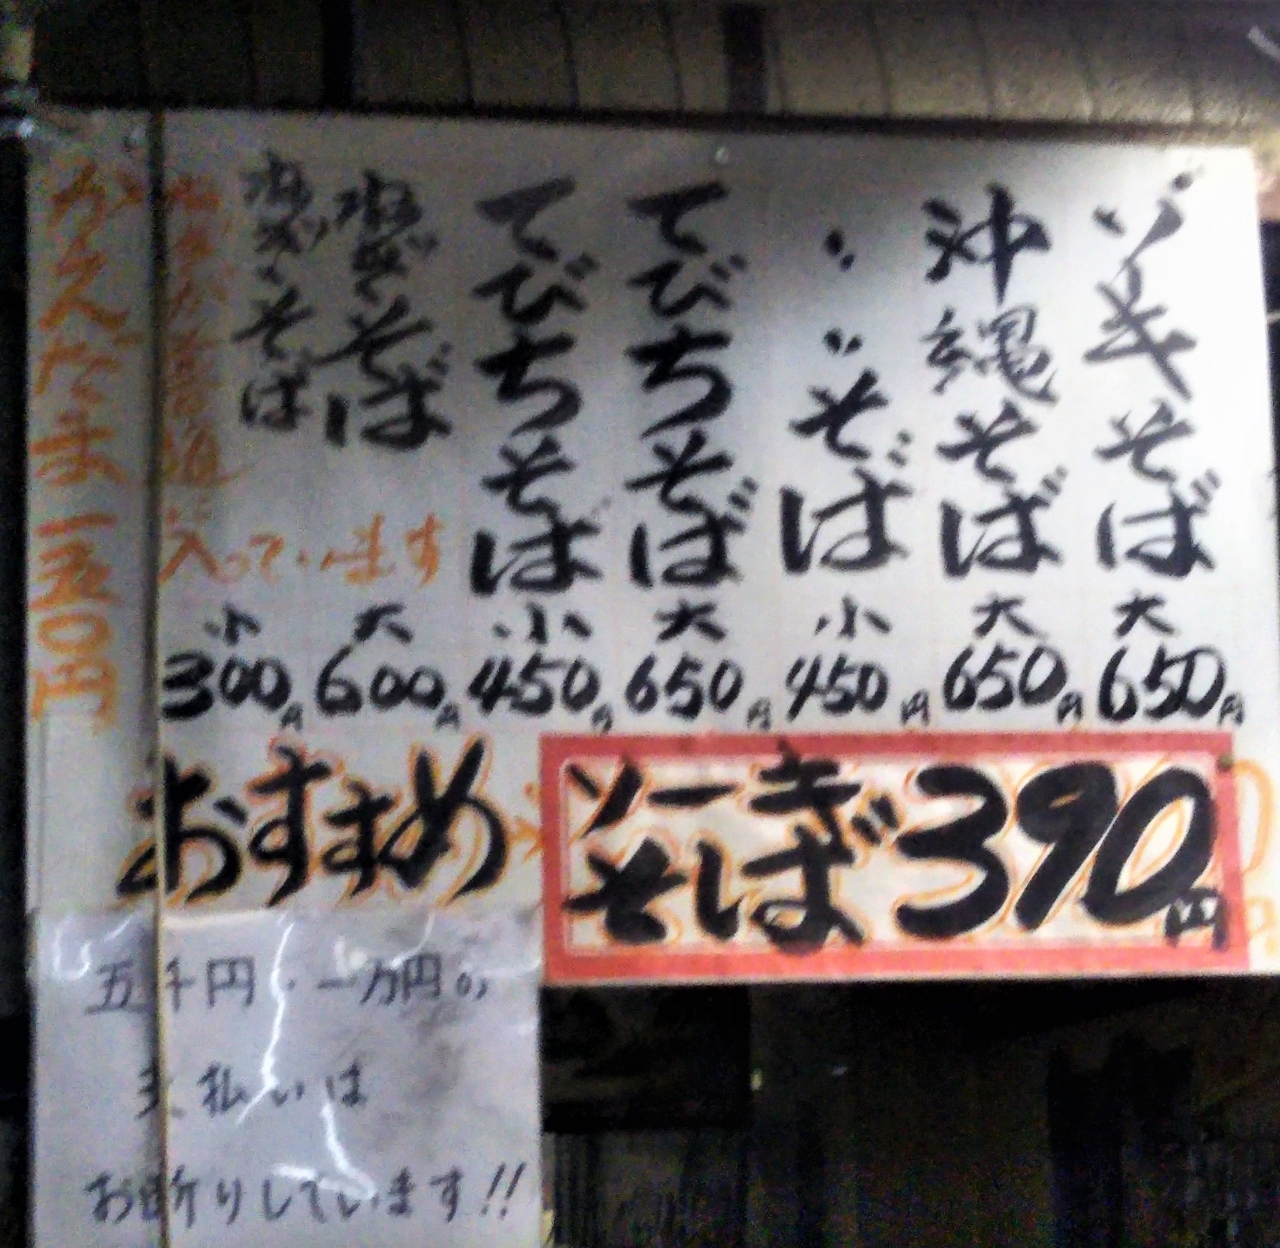 ソーキそば 大 650円
沖縄そば 大 650円
〃〃そば 小 450円
てびちそば 大 650円
てびちそば 小 450円
そば 大 600円
そば 小 300円
入っています
かえだま 一五〇円
おすすめ
ソーキ
そば
390円
五千円・一万円の
支払いは
お断りしています!!